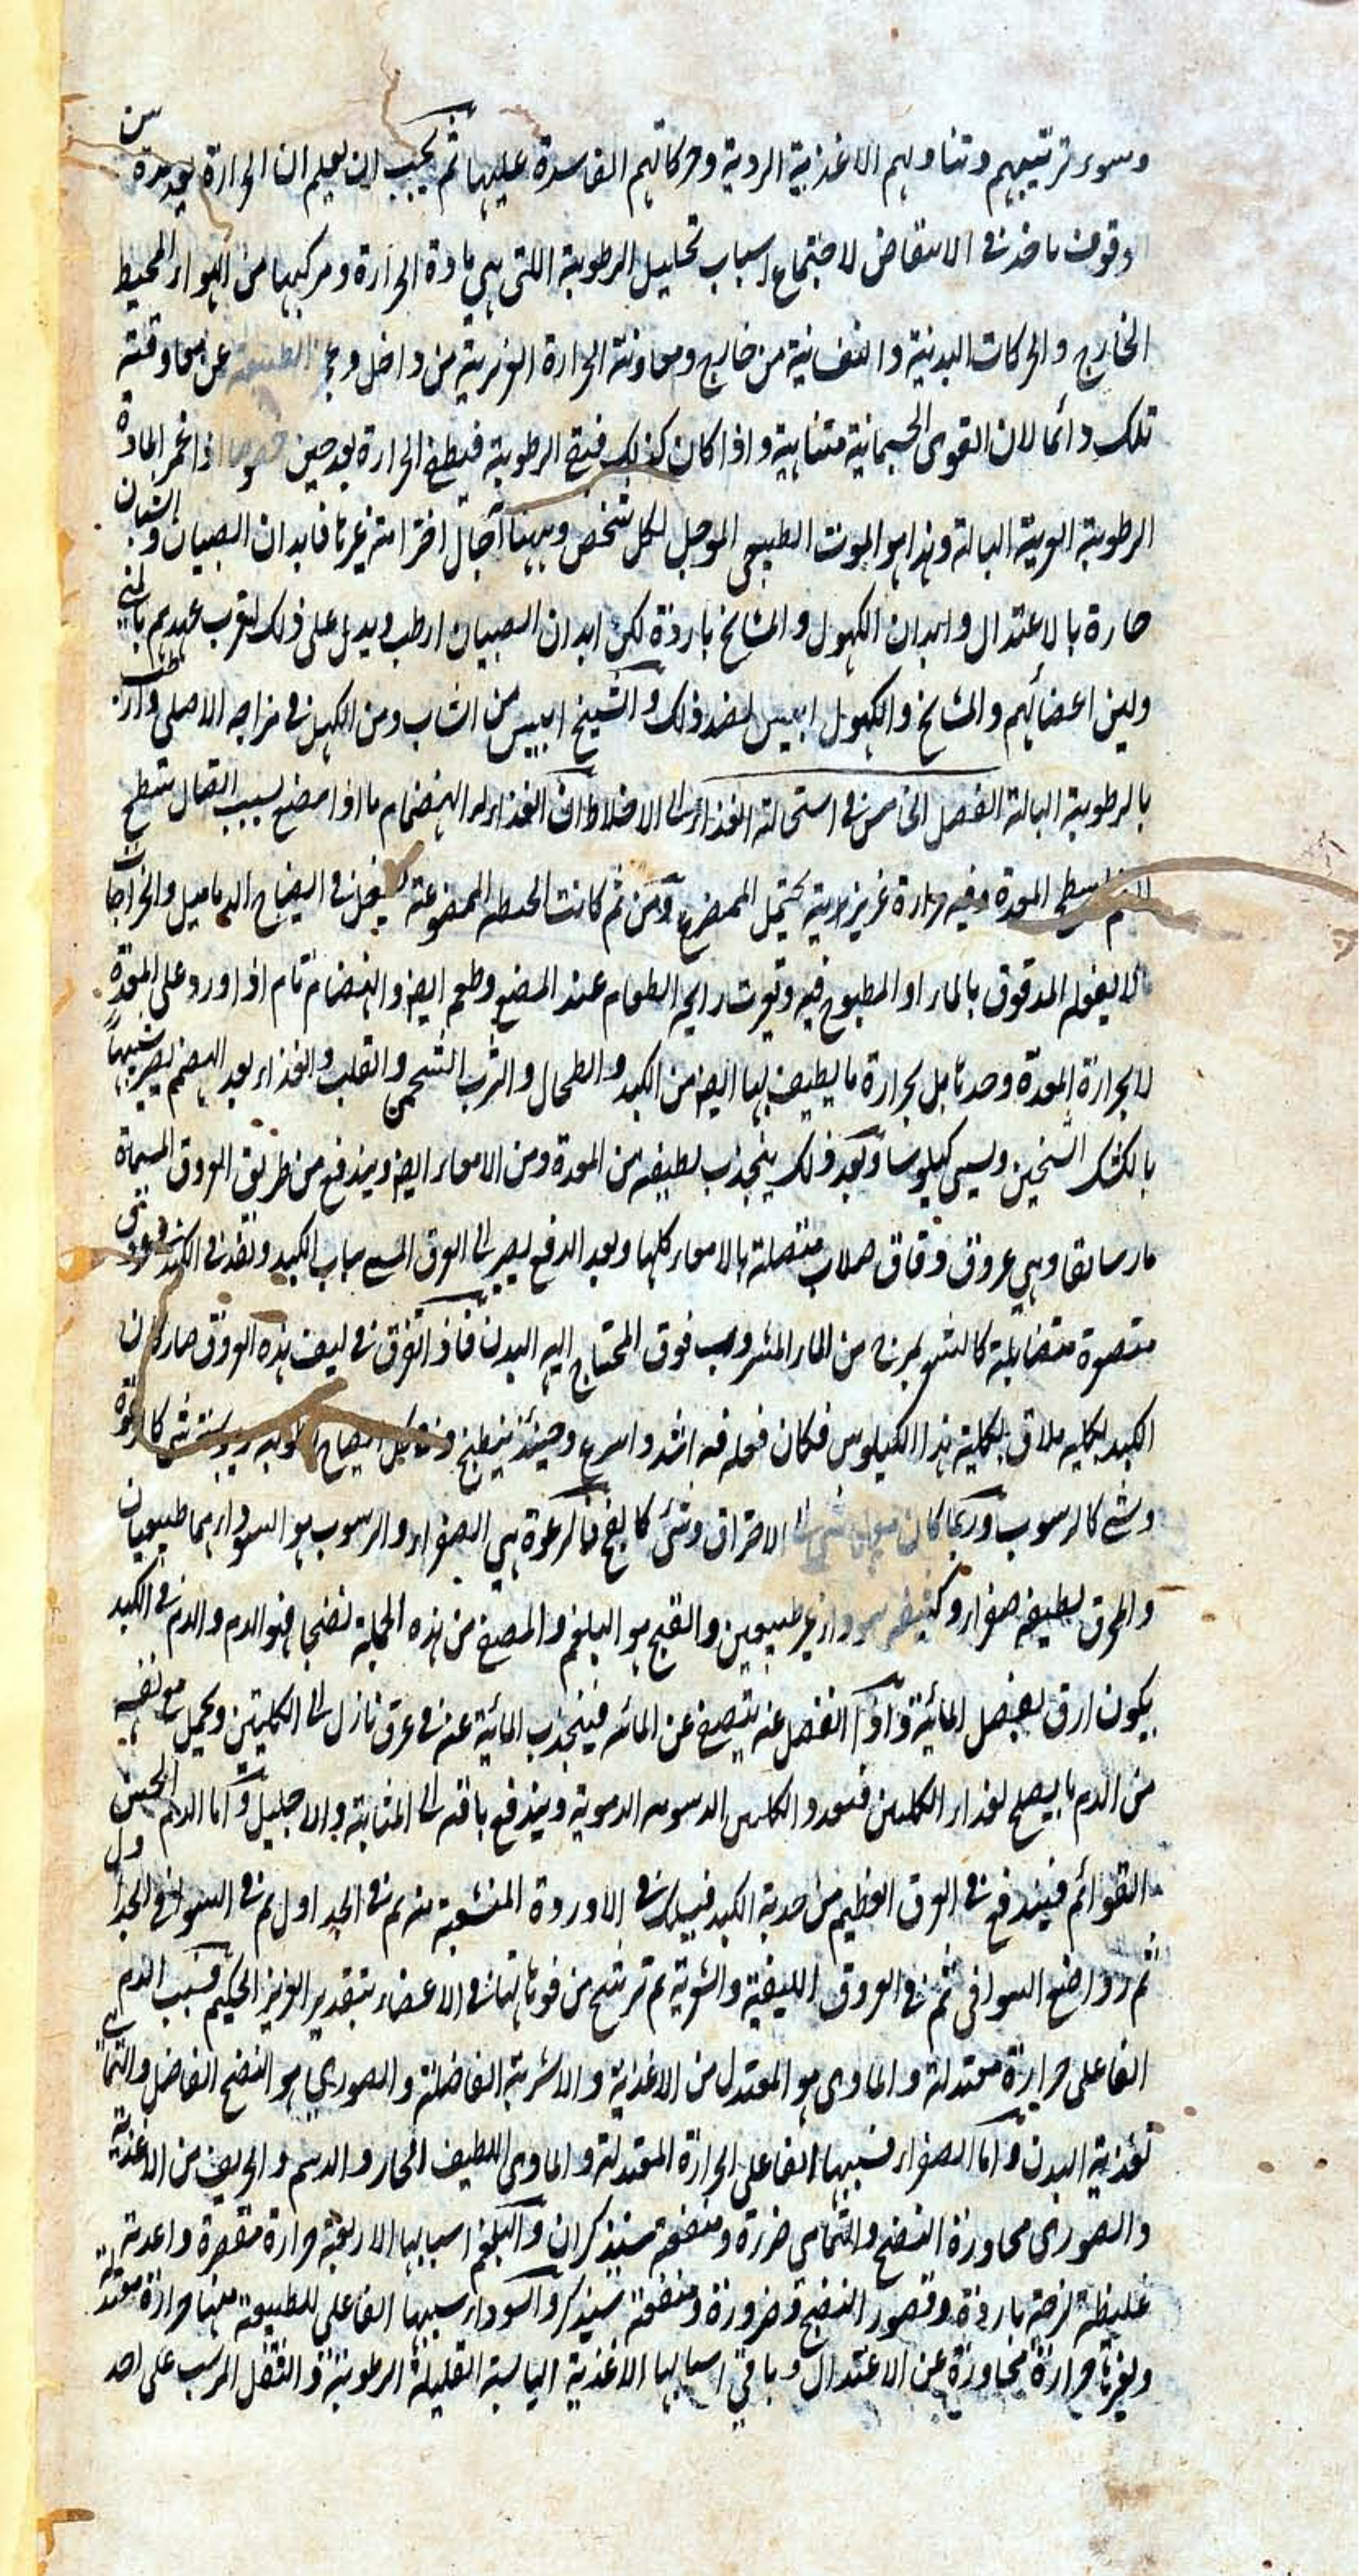 وسوء ترتيبهم وتناولهم الاغذية الردية وحركاتهم الفاسدة عليها ثم يجب ان يعلم ان الحرارة بعد مدة سن
الوقوف ياخذ في الانتقاض لاجتماع اسباب تحليل الرطوبة اللتى هي مادة الحرارة ومركبها من الهواء المحيط
الخارج والحركات البدنية والنفسانية من خارج ومعاونة الحرارة الغريزية من داخل وعجز الطبيعة عن مقاومة
تلك دائما لان القوى الجسمانية متناهية واذا كان كذلك فيفنى الرطوبة فيطفى الحرارة بعد حين خصوصا اذا انغمر المادة
الرطوبة الغريبة البالة وهذا هو الموت الطبيعى الموجل لكل شخص وههنا آجال اخترامية غيرها فابدان الصبيان والشبان
حارة بالاعتدال وابدان الكهول والمشايخ باردة لكن ابدان الصبيان ارطب ويدل على ذلك لقرب عهدهم بالمنى
ولين اعضائهم والمشايخ والكهول ايبس لضد ذلك والشيخ ايبس من الشاب ومن الكهل في مزاجه الاصلى وارطب
بالرطوبة البالة الفصل الخامس في استحالة الغذاء الى الاخلاط ان الغذاء له انهضام ما اذا مضغ بسبب اتصال سطح
الفم بسطح المعدة وفيه حرارة غريزية يحتمل الممضوغ ومن ثم كانت الحنطة الممضوغة يفعل في انضاج الدماميل والخراجات
ما لا يفعله المدقوق بالماء او المطبوخ فيه وتغيرت رايحة الطعام عند المضغ وطعمه ايض والهضم تام اذا ورد على المعدة
لا بحرارة المعدة وحدها بل بحرارة ما يطيف بها ايض من الكبد والطحال والثرب الشحمى والقلب والغذاء بعد الهضم يصير شبيها
بالكشك الثخين ويسمى كيلوسا وبعد ذلك ينجذب لطيفه من المعدة ومن الامعاء ايض ويندفع من طريق العروق المسماة
مارساريقا وهي عروق دقاق صلاب متصلة بالامعاء كلها وبعد الدفع يصير الى العرق المسمى باب الكبد ونفذ في الكبد في عروق
متصغرة متضائلة كالشعر من الماء المشروب فوق المحتاج اليه البدن فاذا تفرق في ليف هذه العروق صار كان
الكبد بكليته ملاق بكلية هذا الكيلوس فكان فعله فيه اشد واسرع وحينئذ ينطبخ شئ كالرغوة
وشئ كالرسوب وربما كان معهما شئ الى الاحتراق وشئ كالفج فالرغوة هي الصفراء والرسوب هو السوداء هما طبيعيان
والمحرق لطيفه صفراء وكثيفه سوداء غير طبيعيين والفج هو البلغم والمصفى من هذه الجملة نضجا فهو الدم والدم في الكبد
يكون ارق لفضل المائية واذا انفصل عنه يتصفى عن المائية فينجذب المائية عنه في عرق نازل الى الكليتين ويحمل مع نفسه
من الدم ما يصلح لغذاء الكليتين فتغذو الكليتين الدسومة الدموية ويندفع باقيه الى المثانة والاحليل واما الدم الحسن
القوائم فيندفع في العرق العظيم من حدبة الكبد فيسلك في الاوردة المنشعبة منه ثم في الجداول ثم في السواقى الجداول
ثم رواضع السواقى ثم في العروق الليفية والشعرية ثم ترشح من فوهاتها في الاعضاء بتقدير العزيز الحكيم فسبب الدم
الفاعلى حرارة معتدلة والمادى هو المعتدل من الاغذية والاشربة الفاضلة والصورى هو النضج الفاضل والتمامى
تغذية البدن واما الصفراء فسببها الفاعلى الحرارة المعتدلة والمادى اللطيف الحار والدسم والحريف من الاغذية
والصورى مجاوزة النضج والتمامى ضررة ومنفعة سيذكران والبلغم اسبابها الاربعة حرارة مقصرة واغذية
غليظة لزجة باردة وقصور النضج وضرورة ومنفعة سيذكر والسوداء سببها الفاعلى للطبيعة منها حرارة معتدلة
ولغيرها حرارة مجاوزة عن الاعتدال وباقى اسبابها الاغذية اليابسة القليلة الرطوبة والثفل المرسب على احد